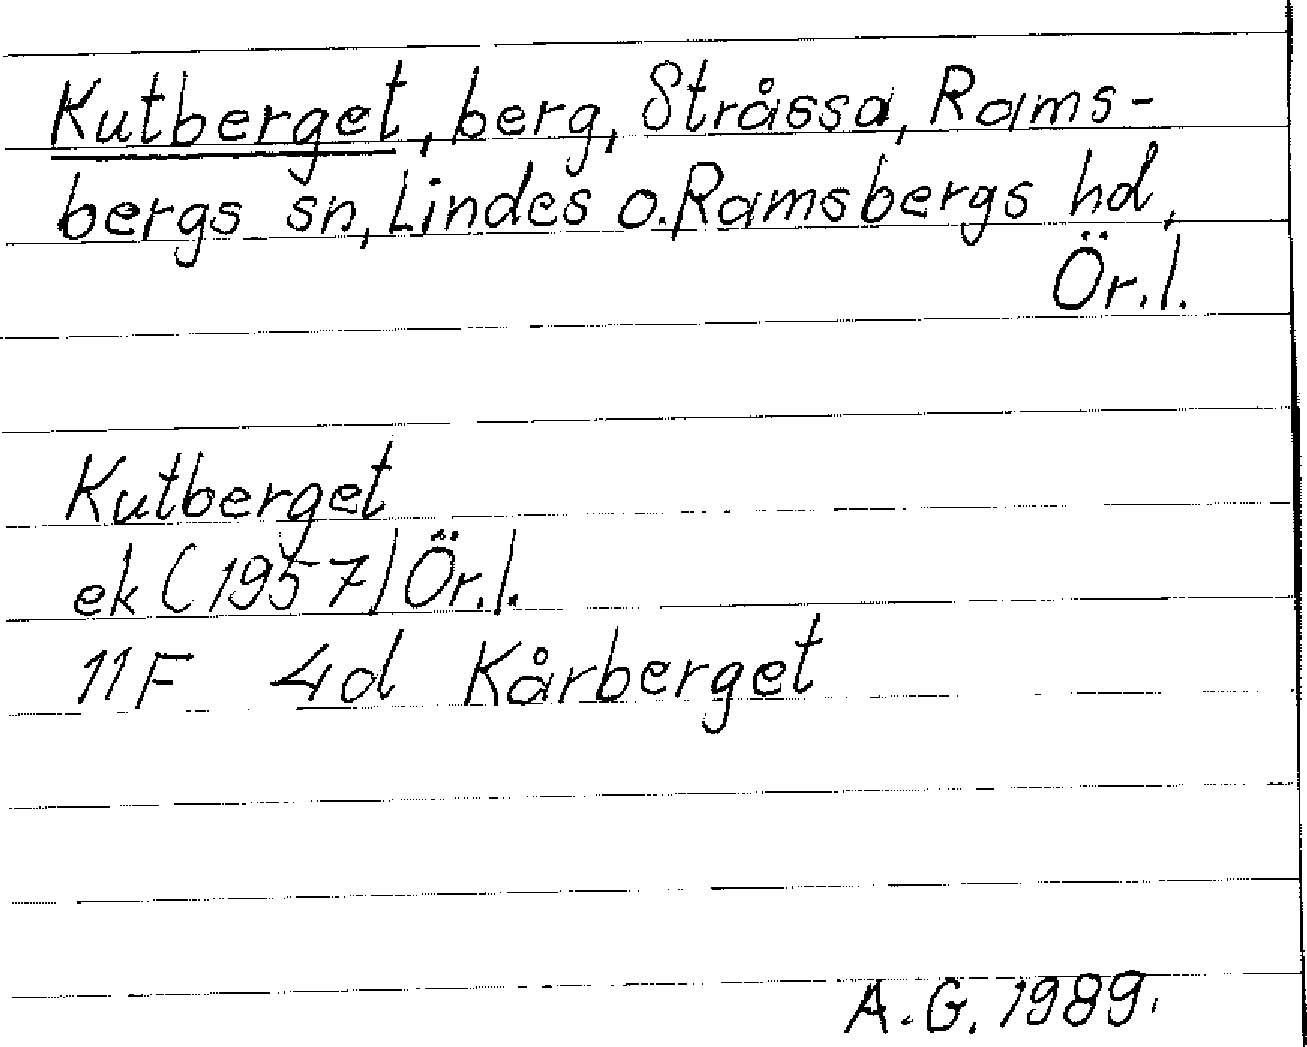 Kutberget, berg, Stråssa, Rams-
bergs sn, Lindes o. Ramsbergs hd,
Ör.l.
Kutberget
ek (1957) Ör.l.
11F 4d Kårberget
A.G. 1989.